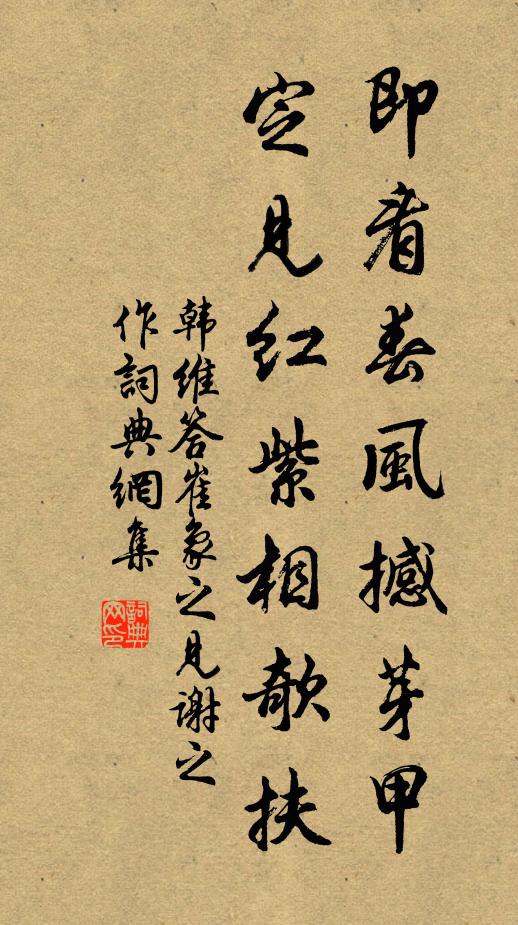 即看春風撼芽甲
定見紅紫相欹扶
韩維答崔象之見謝之
作詞典網集
詞典
网印